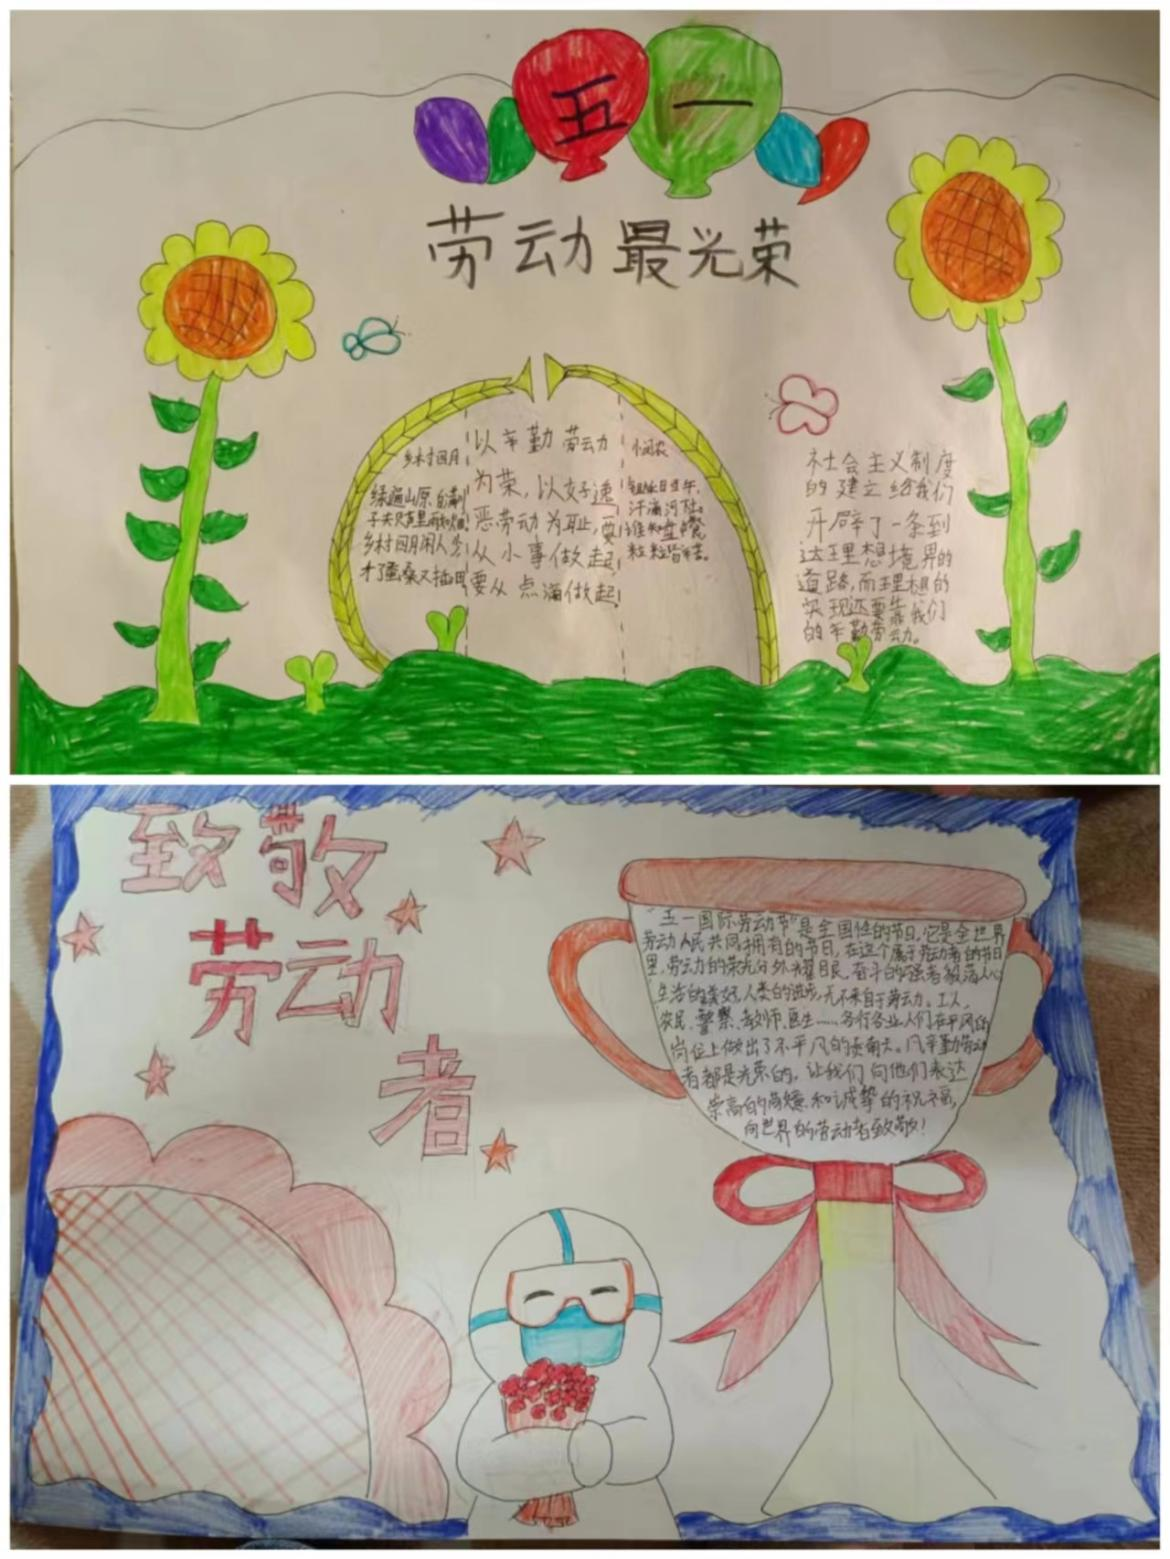 五一
劳动最光荣
乡村四月
绿遍山原白满
子夫只声里雨如烟
乡村四月闲人少
才了蚕桑又插田
以辛勤劳动
为荣，以好逸
恶劳动为耻，要
从小事做起，
要从点滴做起，
悯农
锄禾日当午，
汗滴河下土。
谁知盘中餐
粒粒皆辛苦。
社会主义制度
的建立给我们
开辟了一条到
达理想境界的
道路，而理想的
实现还要靠我们
的辛勤劳动。
致敬
劳动
者
"五一国际劳动节"是全国性的节日，它是全世界
劳动人民共同拥有的节日，在这个属于劳动者的节日
里，劳动的荣光分外耀眼，奋斗的强者
生活的美好，人类的进步，无不来自于劳动。工人、
农民、警察、教师、医生……各行各业人们在平凡的
岗位上做出了不平凡的贡献。凡辛勤劳动
者都是光荣的，让我们向他们表达
崇高的 和诚挚的祝福，
向世界的劳动者致敬！